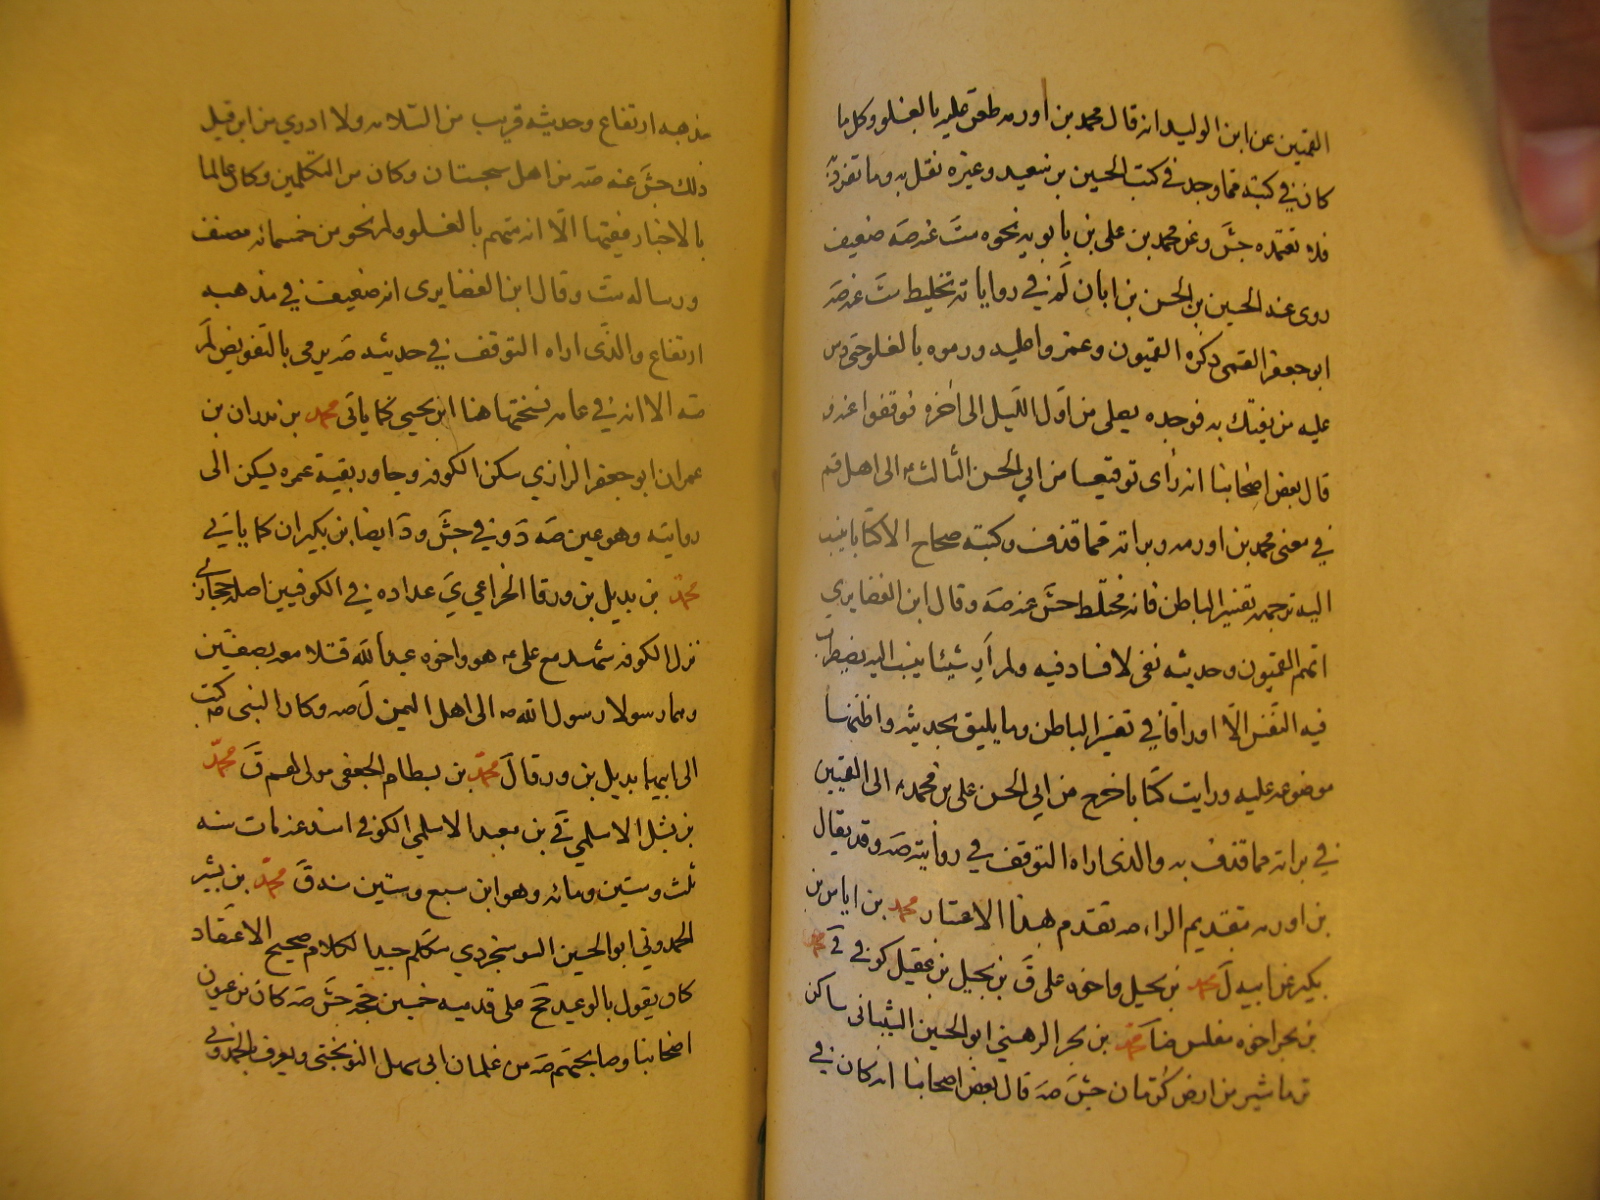 القميين عن ابن الوليد انه قال محمد بن اورمه طعن عليه بالغلو وكل ما
كان في كتبه مما وجد في كتب الحسين بن سعيد وغيره نقل به وما تفرد به
فلا تعتمده جش وعن محمد بن علي بن بابويه نحوه ست عنه صه ضعيف
روى عنه الحسين بن الحسن بن ابان لم في رواياته تخليط ست عنه صه
ابو جعفر القمي ذكره القميون وغمزوا عليه ورموه بالغلو حتى دس
عليه من يفتك به فوجده يصلي من اول الليل الى اخره فوقفوا عنه و
قال بعض اصحابنا انه رأى توقيعا من ابي الحسن الثالث ع الى اهل قم
في معنى محمد بن اورمه وبراته مما قذف وكتبه صحاح الا كتابا ينسب
اليه ترجمته تفسير الباطن فانه مختلط جش عنه صه وقال ابن الغضايري
اتهم القميون وحديثه نقي لا فساد فيه ولم أر شيئا ينسب اليه يضطرب
فيه النفس الا اوراقا في تفسير الباطن وما يليق بحديثه واظنها
موضوعه عليه ورايت كتابا خرج من ابي الحسن علي بن محمد ع الى القميين
في براته مما قذف به والذي اراه التوقف في روايته صه وقد يقال
بن اورمه بتقديم الراء صه تقدم هذا الاعتبار محمد بن اياس بن
بكير عن ابيه ل محمد بن بجيل واخوه علي ق بن بجيل بن عقيل كوفي ق محمد
بن بحر اخوه مفلس ضا محمد بن بحر الرهني ابو الحسين الشيباني ساكن
نرماشير من ارض كرمان جش صه قال بعض اصحابنا انه كان في
مذهبه ارتفاع وحديثه قريب من السلامه ولا ادري من اين قيل
ذلك جش عنه صه من اهل سجستان وكان من المتكلمين وكان عالما
بالاخبار فقيها الا انه متهم بالغلو وله نحو من خمسمائه مصنف
ورساله ست وقال ابن الغضايري انه ضعيف في مذهبه
ارتفاع والذي اراه التوقف في حديثه صه يرمى بالتفويض لم
صه الا انه في عامه نسختها هنا ابن يحيى كما ياتي محمد بن بدران بن
عمران ابو جعفر الرازي سكن الكوفه وجاور بقية عمره يسكن الى
روايته وهو عين صه د وفي جش ود ايضا بن بكران كما ياتي
محمد بن بديل بن ورقا الخزاعي ي عداده في الكوفيين اصله حجازي
نزل الكوفه شهد مع علي ع هو واخوه عبدالله قتلا معه بصفين
وهما رسولا رسول الله ص الى اهل اليمن ل صه وكان النبي ص كتب
الى ابيهما بديل بن ورقا ل محمد بن بسطام الجعفي مولاهم ق محمد
بن بشر الاسلمي ق بن معبد الاسلمي الكوفي اسند عنه مات سنه
ثلث وستين ومائه وهو ابن سبع وستين سنه ق محمد بن بشير
الحمدوني ابو الحسين السوسنجردي متكلم جيد الكلام صحيح الاعتقاد
كان يقول بالوعيد حج على قدميه خمسين حجه جش صه كان من عيون
اصحابنا وصالحيهم صه من غلمان ابي سهل النوبختي ويعرف بالحمدوني